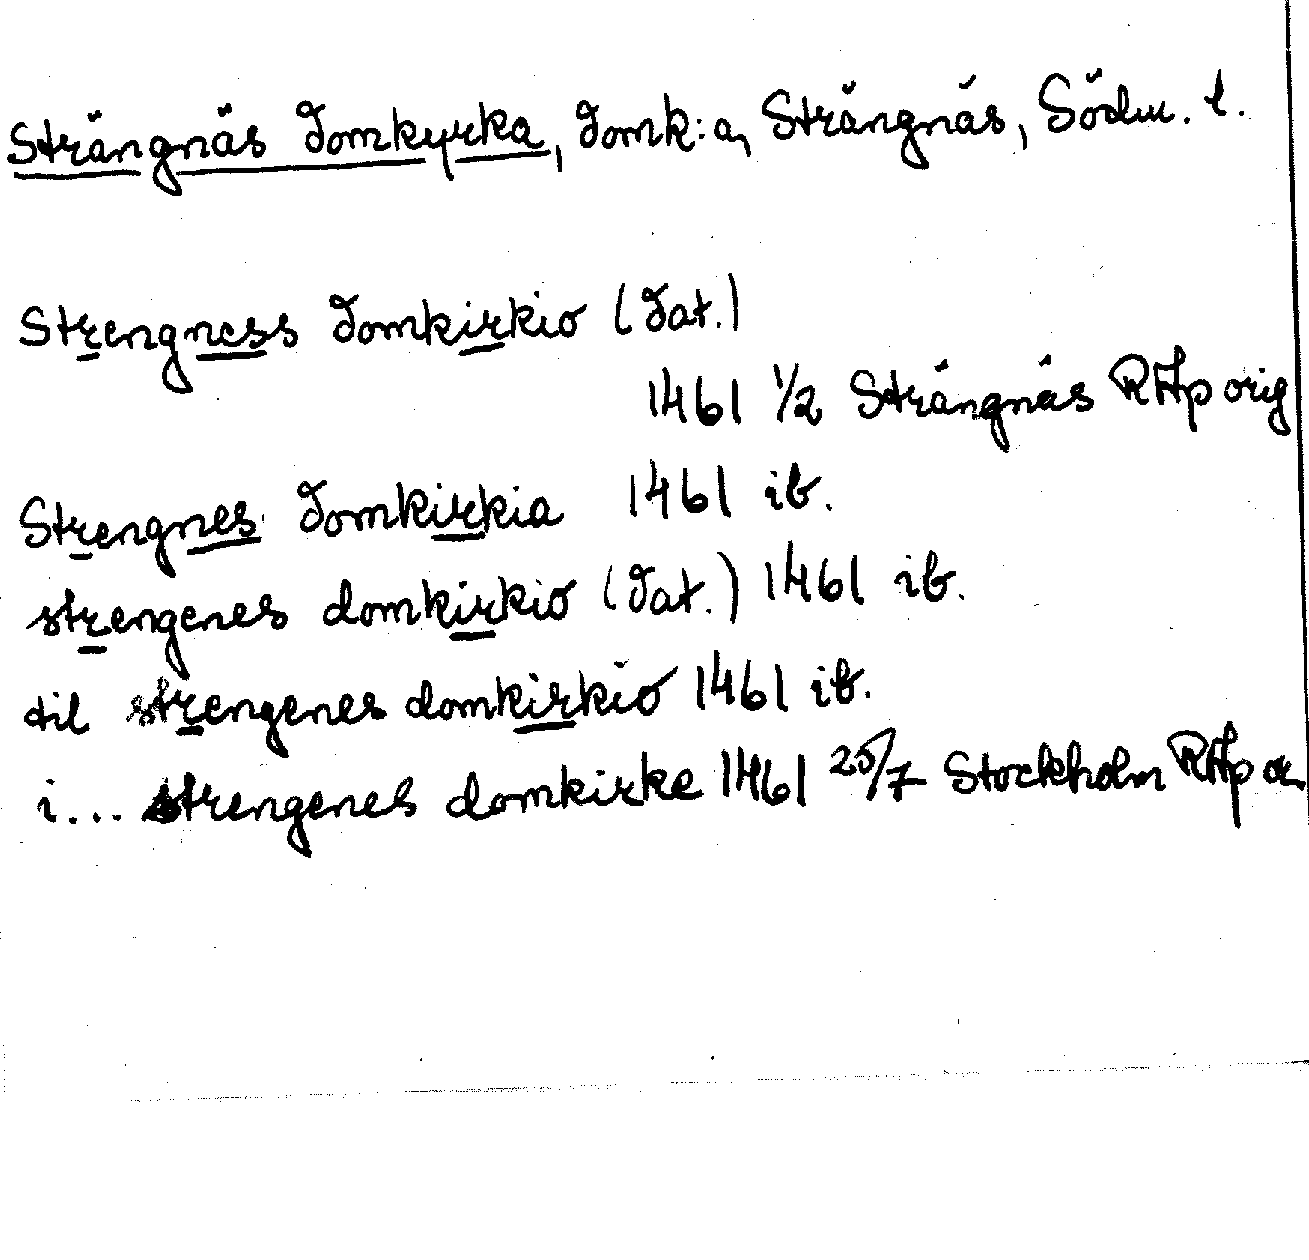 Strängnäs Domkyrka, Domk:a, Strängnäs, Södm. l.
Strengness Domkirkio (Dat.)
1461 1/2 Strängnäs RAp orig
Strengnes Domkirkia 1461 ib.
strengenes domkirkio (Dat.) 1461 ib.
til strengenes domkirkio 1461 ib.
i... strengenes domkirke 1461 25/7 Stockholm RAp or.